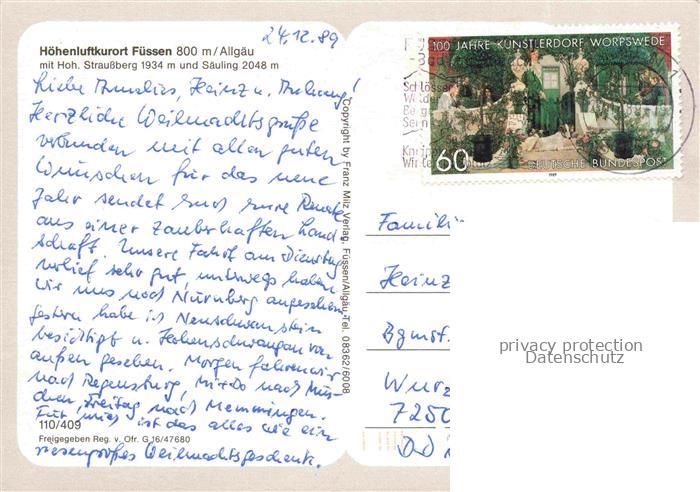 24.12.89
Höhenluftkurort Füssen 800 m/Allgäu
mit Hoh. Straußberg 1934 m und Säuling 2048 m
Liebe Heinz u.
Herzliche Weihnachtsgrüße
verbunden mit allen guten
Wünschen für das neue
Jahr sendet Euch Eure Renate
aus einer zauberhaften Land
schaft. Unsere Fahrt am Dienstag
verlief sehr gut, unterwegs haben
wir uns noch Nürnberg angesehen
gestern habe ich Neuschwanstein
besichtigt u. Hohenschwangau von
außen gesehen. Morgen fahren wir
nach Regensburg, Mi+Do nach Mün-
chen, Freitag nach Memmingen.
Für mich ist das alles wie ein
riesengroßes Weihnachtsgeschenk.
110/409
Freigegeben Reg. v. Ofr. G 16/47680
Copyright by Franz Milz Verlag, Füssen/Allgäu, Tel. 08362/6008
100 JAHRE KÜNSTLERDORF WORPSWEDE
60
DEUTSCHE BUNDESPOST
1989
Famili
Heinz
Bgmst.
Wurz
7250
DD
privacy protection
Datenschutz